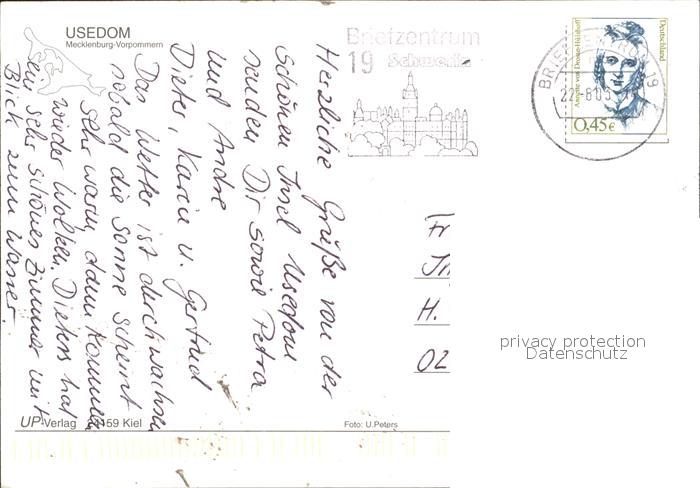 USEDOM
Mecklenburg-Vorpommern
Briefzentrum
19 Schwerin
Deutschland
Annette von Droste-Hülshoff
0,45€
BRIEFZENTRUM 19
22.-6.05
Herzliche Grüße von der
schönen Insel Usedom
senden Dir sowie Petra
und Andre
Dieter, Karin u. Gertrud
Das Wetter ist durchwachsen
sobald die Sonne scheint
sehr warm, dann kommen
wieder Wolken. Diethers hat
ein sehr schönes Zimmer mit
Blick zum Wasser.
H.
02
privacy protection
Datenschutz
UP-Verlag
Kiel
Foto: U.Peters